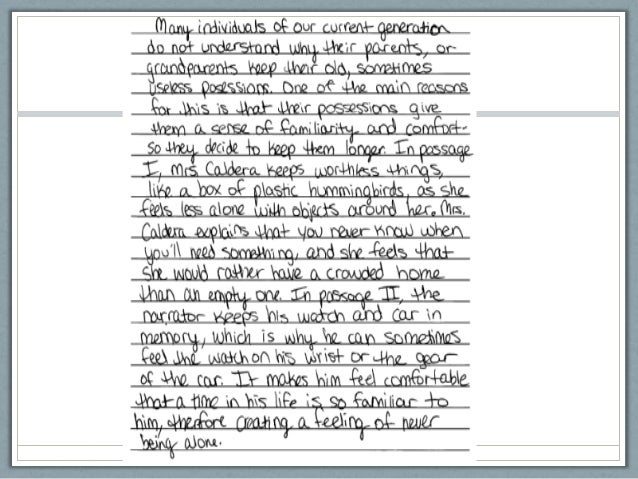 Many individuals of our current generation
do not understand why their parents, or
grandparents keep their old, sometimes
useless posessions. One of the main reasons
for this is that their possessions give
them a sense of familiarity and comfort-
so they decide to keep them longer. In passage
I, Mrs. Caldera keeps worthless things,
like a box of plastic hummingbirds, as she
feels less alone with objects around her. Mrs.
Caldera explains that you never know when
you'll need something, and she feels that
she would rather have a crowded home
than an empty one. In passage II, the
narrator keeps his watch and car in
memory, which is why he can sometimes
feel the watch on his wrist or the gear
of the car. It makes him feel comfortable
that a time in his life is so familiar to
him, therefore creating a feeling of never
being alone.